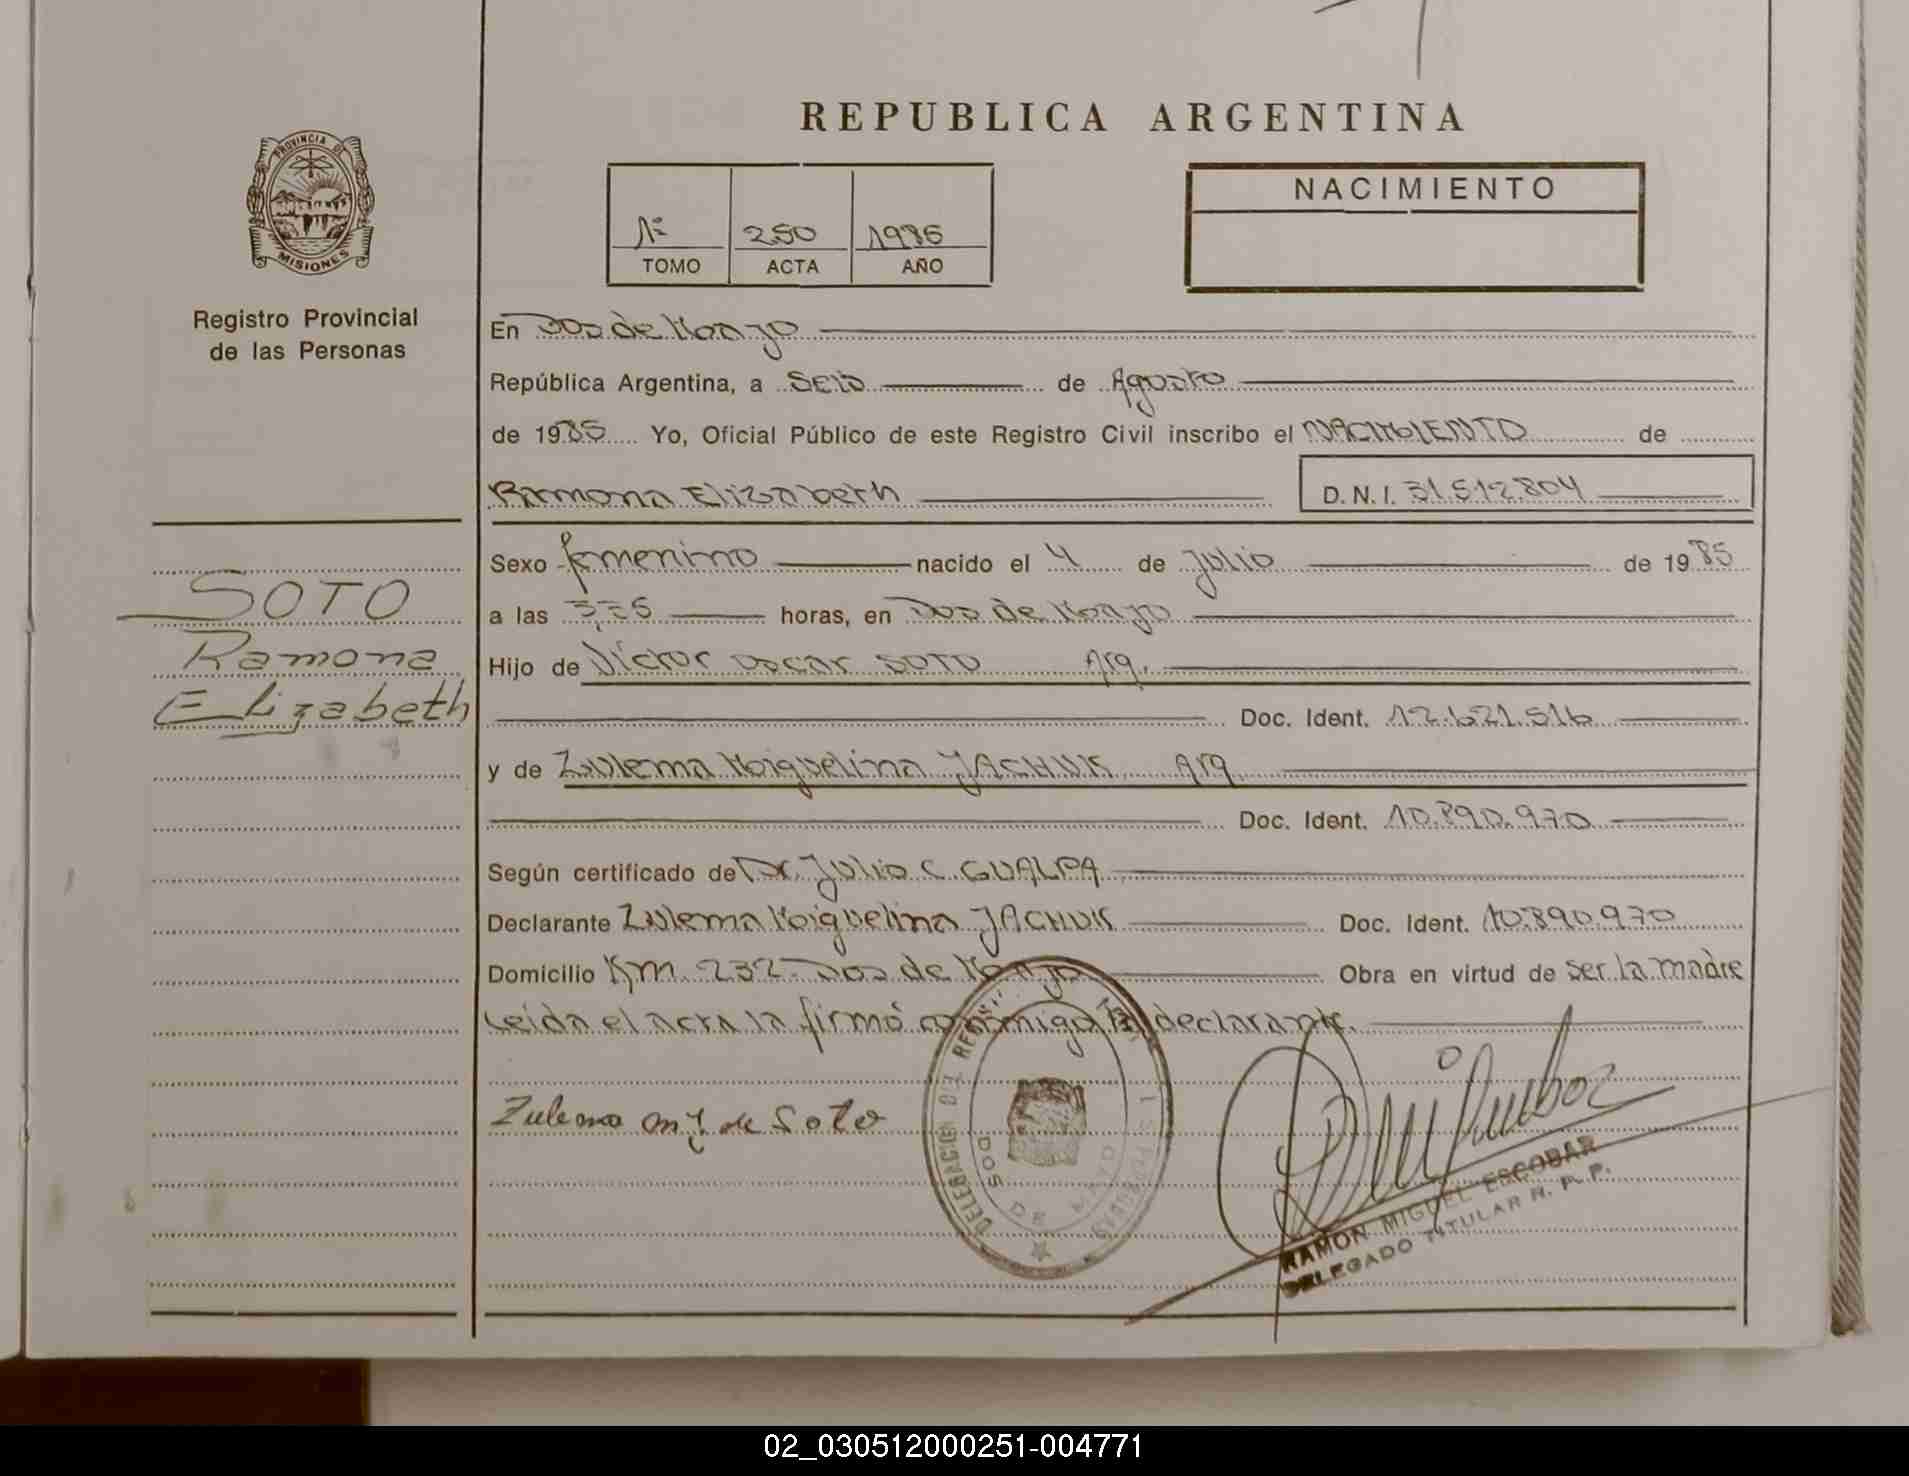 REPUBLICA ARGENTINA
PROVINCIA DE
MISIONES
Registro Provincial
de las Personas
1º 250 1986
TOMO ACTA AÑO
NACIMIENTO
En Dos de Mayo
República Argentina, a Seis de Agosto
de 1985 Yo, Oficial Público de este Registro Civil inscribo el NACIMIENTO de
Ramona Elizabeth D.N.I. 31.512.804
SOTO
Ramona
Elizabeth
Sexo femenino nacido el 4 de Julio de 1985
a las horas, en Dos de Mayo
Hijo de Víctor Oscar SOTO Arg.
Doc. Ident. 12.621.516
y de Zulema Miguelina JACHUK Arg
Doc. Ident. 10.890.970
Según certificado de Dr. Julio C. GUALPA
Declarante Zulema Miguelina JACHUK Doc. Ident. 10.890.970
Domicilio Km. 232 Dos de Mayo Obra en virtud de ser la madre
Leída el acta la firmó conmigo la declarante.
Zulema M J de Soto
DELEGACION DEL REGISTRO DE LAS PERSONAS
DOS DE MAYO
RAMON MIGUEL ESCOBAR
DELEGADO TITULAR R. P. P.
02_030512000251-004771